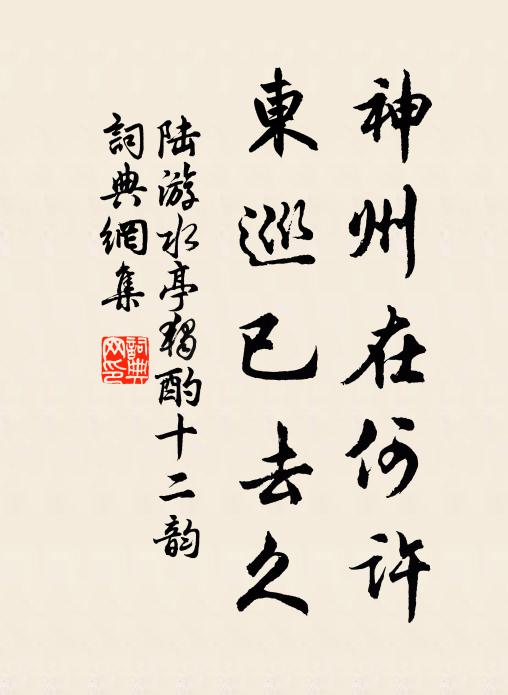 神州在何許
東巡已去久
陆游水亭獨酌十二韵
詞典網集
詞典網印